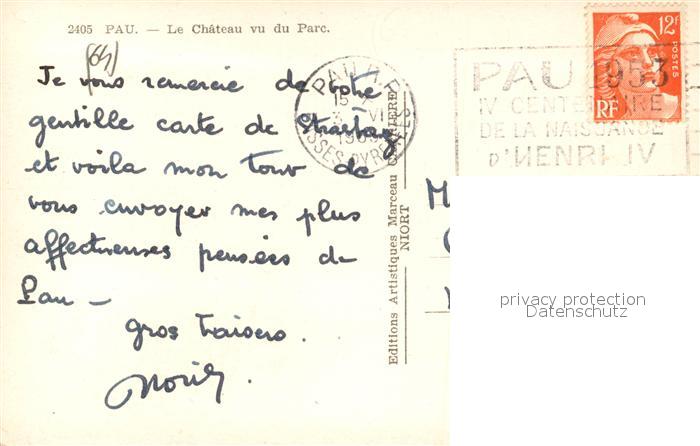 2405 PAU. — Le Château vu du Parc.
(64)
Je vous remercie de votre
gentille carte de Strasbourg
et voila mon tour de
vous envoyer mes plus
affectueuses pensées de
Pau —
gros baisers.
PAU R.P.
15
VI
1953
BSSES-PYRÉNÉES
Editions Artistiques Marceau CARRIERE
NIORT
12F
POSTES
RF
PAU 1953
IV CENTENAIRE
DE LA NAISSANCE
D'HENRI IV
M
privacy protection
Datenschutz